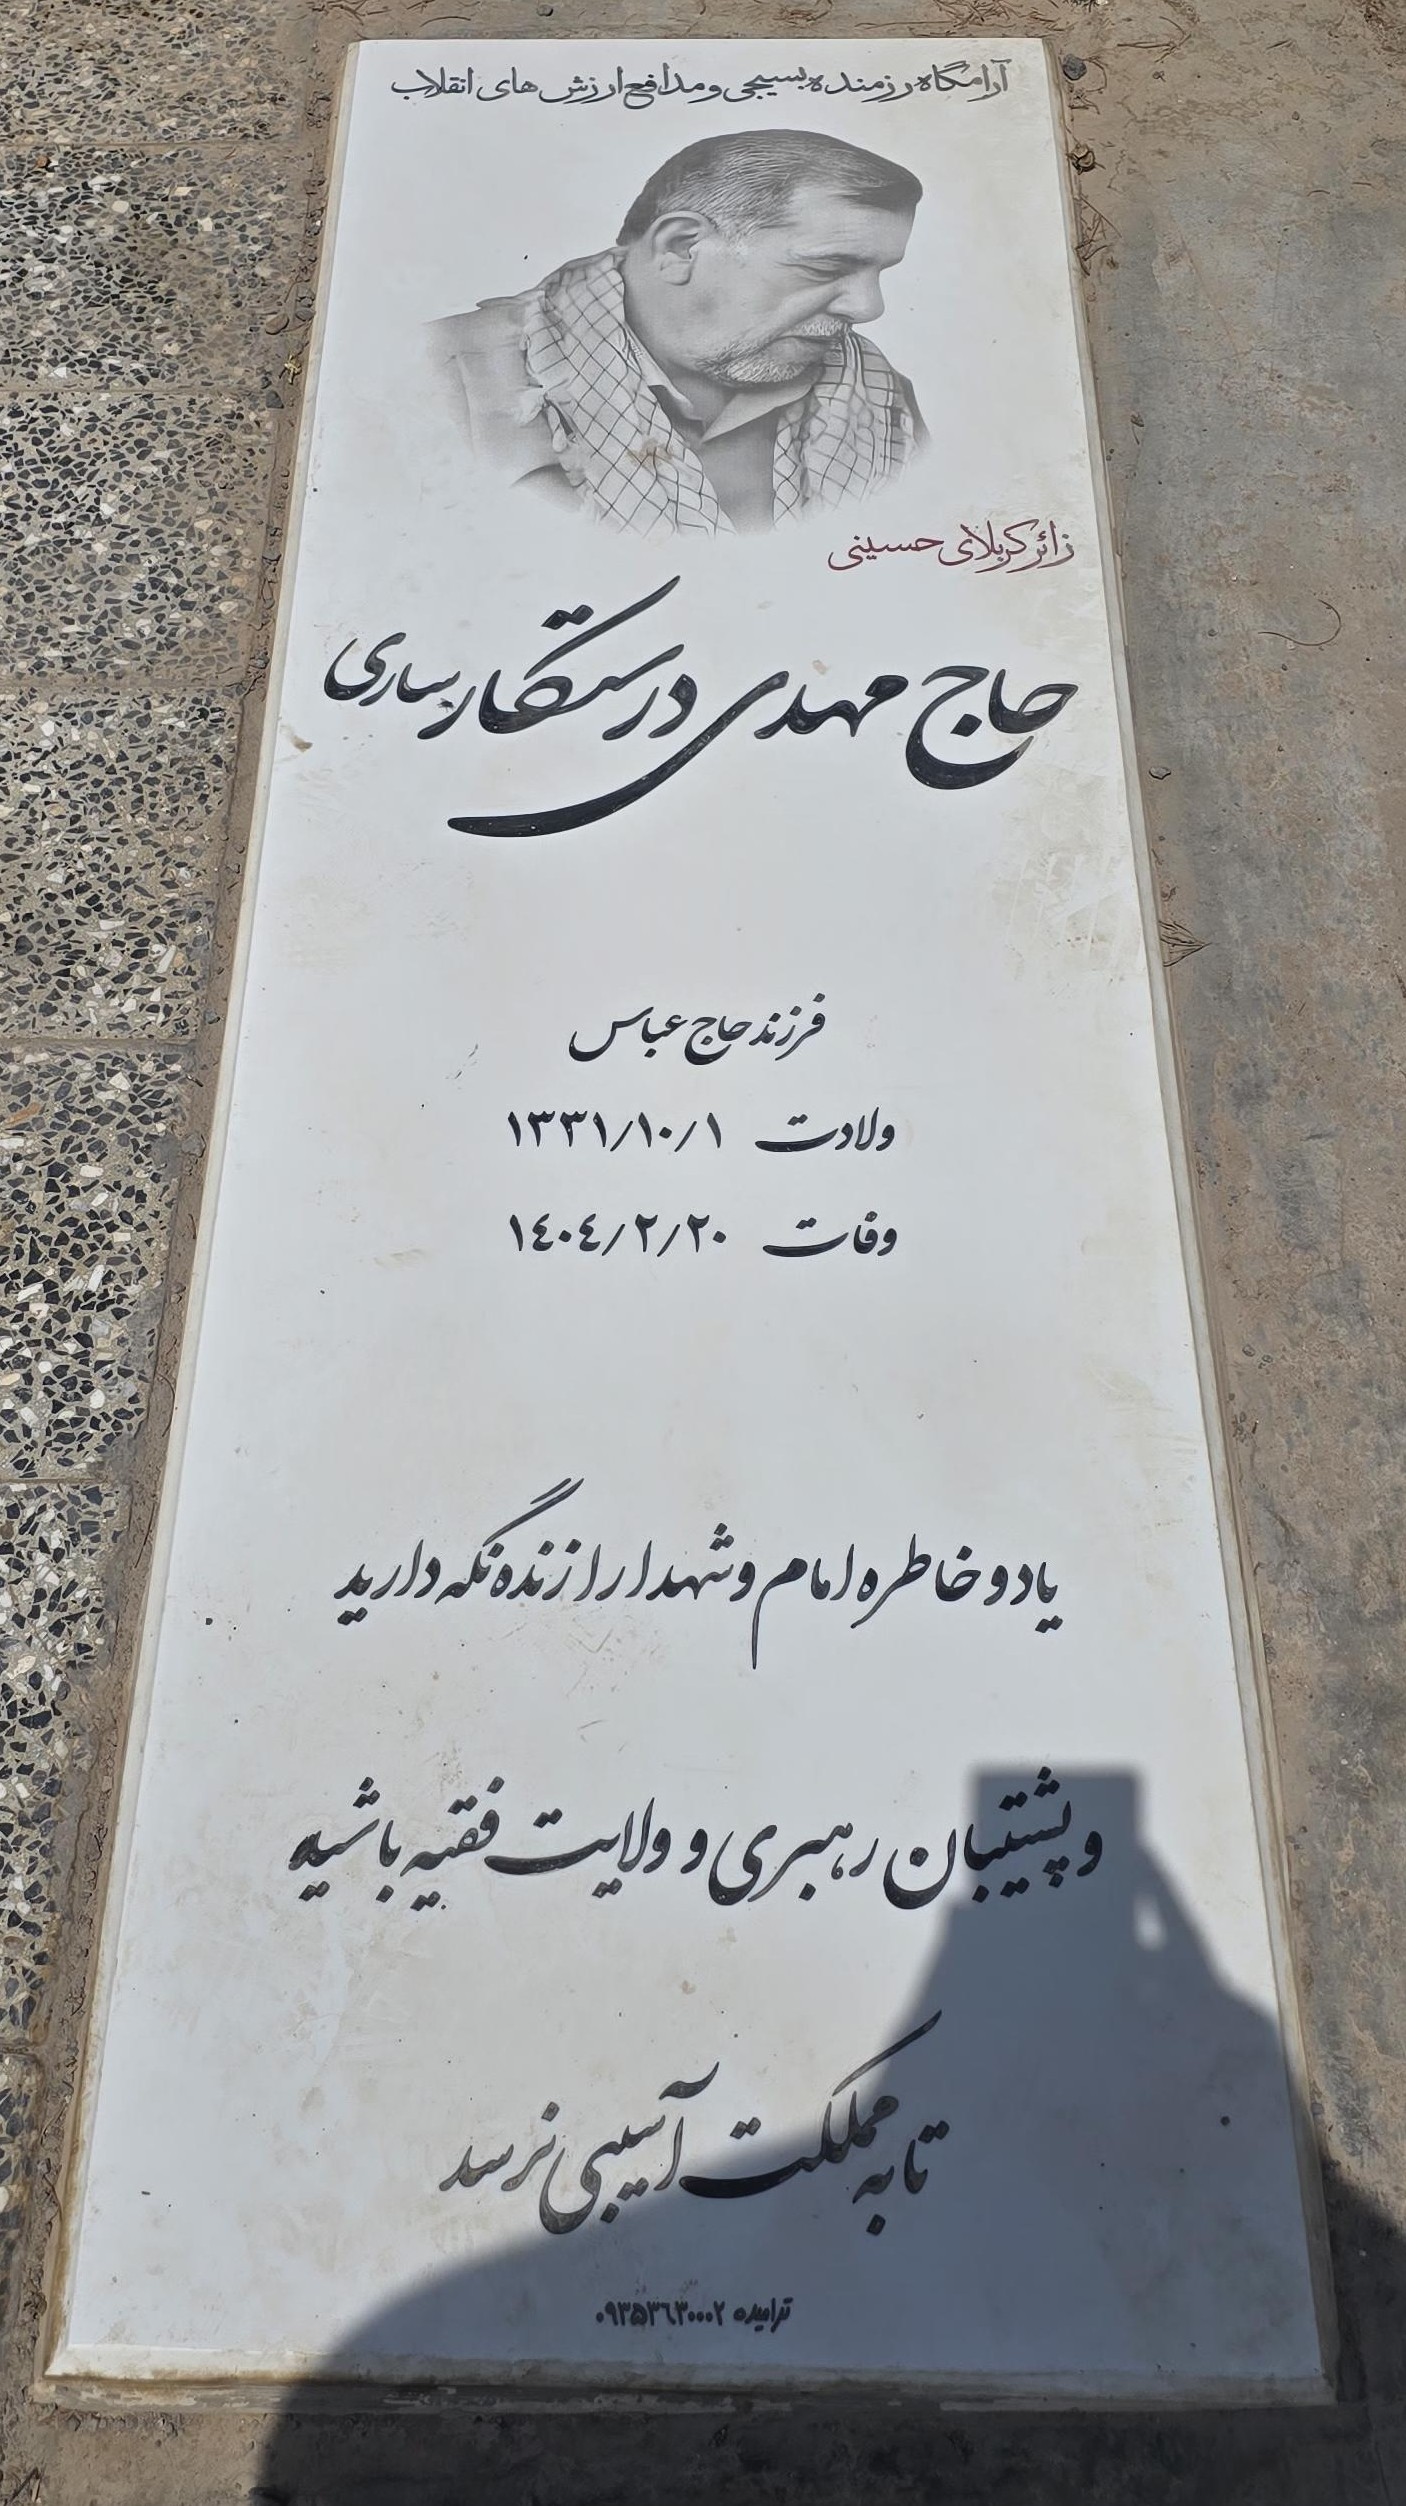 آرامگاه رزمنده بسیجی و مدافع ارزش های انقلاب
زائر کربلای حسینی
حاج مهدی درستکار ساری
فرزند حاج عباس
ولادت ۱۳۳۱/۱۰/۱
وفات ۱٤۰٤/۲/۲۰
یاد و خاطره امام و شهدا را زنده نگه دارید
و پشتیبان رهبری و ولایت فقیه باشید
تا به مملکت آسیبی نرسد
ترامیده ۰۹۳۵۳٦۳۰۰۰۲